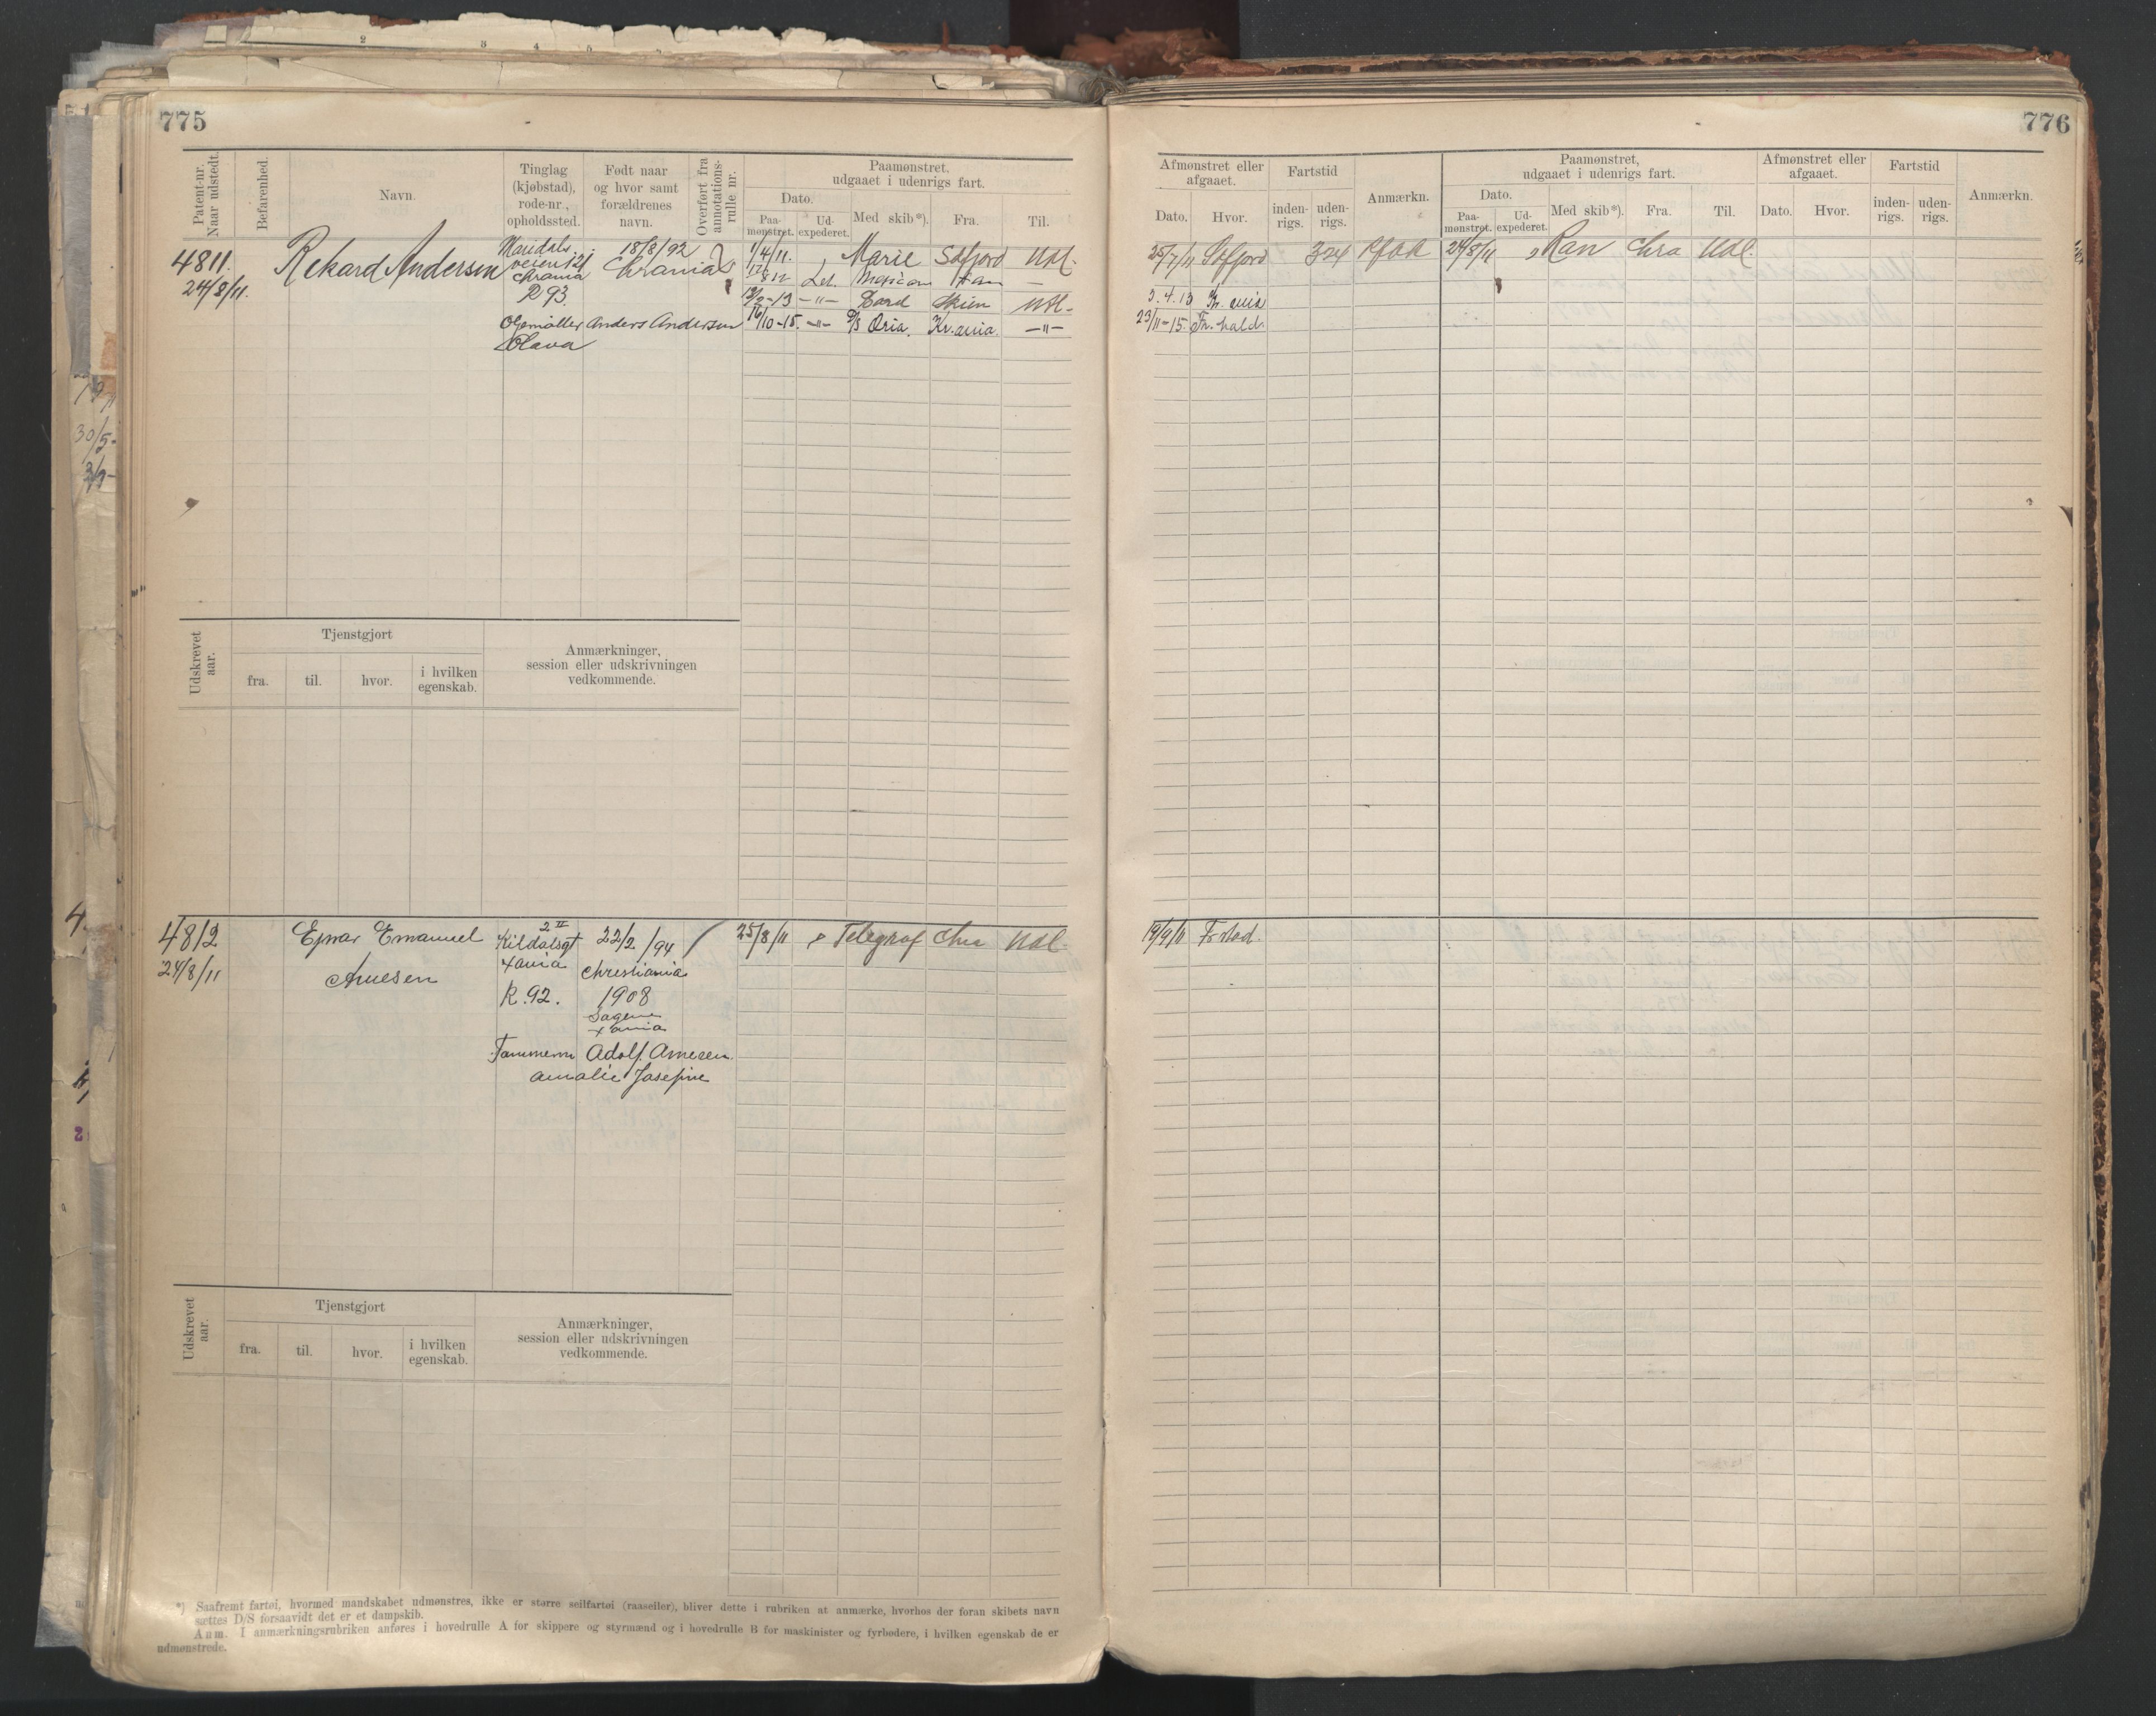 775
Patent-nr.
Naar udstedt.
Befarenhed.
Navn.
Tinglag
(kjøbstad),
rode-nr.,
opholdssted.
Født naar
og hvor samt
forældrenes
navn.
Overført fra
annotations-
rulle nr.
Paamønstret,
udgaaet i udenrigs fart.
Dato.
Paa-
mønstret.
Ud-
expederet.
Med skib*).
Fra.
Til.
4811.
24/8/11.
Rekard Andersen
Maridals
veien 121
Chrania
R 93.
18/8/92
Chrania
Anders Andersen
Olava
1/4/11. Marie Sdfjord Udl.
Mexican
13 -"- Skien Udl.
16/10-15. -"- D/S Oria. Kr.ania. -"-
Udskrevet
aar.
Tjenstgjort
fra.
til.
hvor.
i hvilken
egenskab.
Anmærkninger,
session eller udskrivningen
vedkommende.
4812
24/8/11
Ejnar Emanuel
Arnesen
2 II
Kildalsgt
Xania
R. 92.
22/2/94
Christiania
1908
Sagene
Xania
Tømmerm Adolf Arnesen.
Amalie Josefine
25/8/11 Telegraf Chra Udl.
Udskrevet
aar.
Tjenstgjort
fra.
til.
hvor.
i hvilken
egenskab.
Anmærkninger,
session eller udskrivningen
vedkommende.
*) Saafremt fartøi, hvormed mandskabet udmønstres, ikke er større seilfartøi (raaseiler), bliver dette i rubriken at anmærke, hvorhos der foran skibets navn
sættes D/S forsaavidt det er et dampskib.
Anm. I anmærkningsrubriken anføres i hovedrulle A for skippere og styrmænd og i hovedrulle B for maskinister og fyrbødere, i hvilken egenskab de er
udmønstrede.
776
Afmønstret eller
afgaaet.
Dato.
Hvor.
Fartstid
inden-
rigs.
uden-
rigs.
Anmærkn.
Paamønstret,
udgaaet i udenrigs fart.
Dato.
Paa-
mønstret.
Ud-
expederet.
Med skib*).
Fra.
Til.
Afmønstret eller
afgaaet.
Dato.
Hvor.
Fartstid
inden-
rigs.
uden-
rigs.
Anmærkn.
25/7/11 Sdfjord 24/8/11 Ran Chra Udl.
3.4.13 Kr. ania
23/11-15. Fr. hald.
19/9/11 Fr.stad.